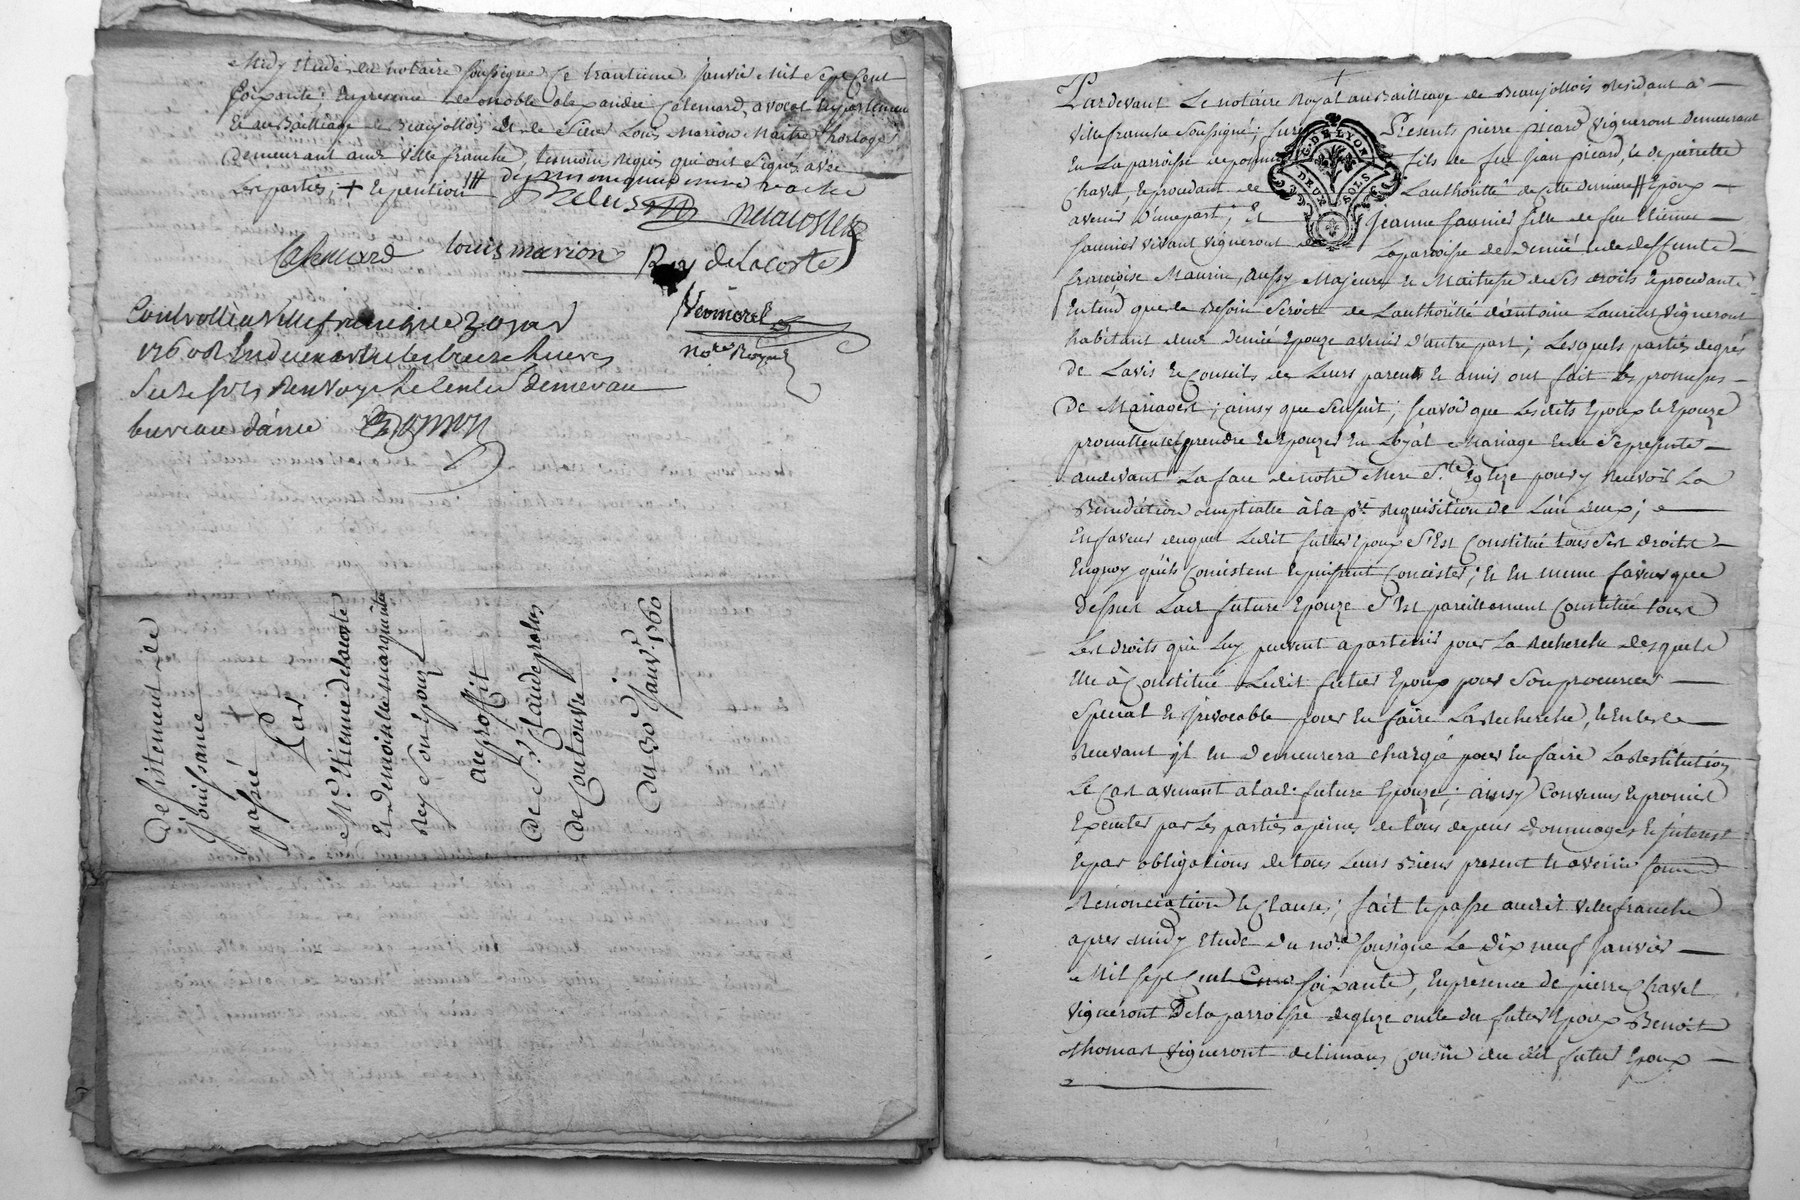 Midy Etude du notaire soussigné Ce trantieme Janvié Mil Sept Cent
soixante; En presence de noble alexandre Calemard, avocat En parlement
Et au Bailliage de Beaujollois Et de Sieur Louis Marion Maitre horloger
demeurant audt villefranche, temoins requis qui ont signés avec
Les parties,
delacoste
Calemard louis marion Rey delacoste
Vermorel
nore Royal
Controllé a villefranche le 30 janv
1760 R
sols
bureau
Desistement de
jouissance
passé
Par
Mr. Etienne delacoste
Et demoiselle marguerite
Rey son Epouze
au proffit
de Sr. Claude
de Coutouvre
Du 30e Janvr. 1760
Pardevant Le notaire Royal au Bailliage de Beaujollois Residant a
villefranche soussigné; furent Presents pierre picard vigneront demeurant
En La parroisse de pommiers fils de feu Jean picard, Et de pierrette
Chavel, Et procedant de L'authorité de cette derniere Epoux
avenir d'une part; Et Jeanne Saunier fille de feu Etienne
Saunier vivant vigneront de La parroisse de Denicé Et de deffunte
françoise Maurin, aussy Majeure Et Maitresse de ses droits Et procedante
Entend que de Besoin seroit de L'authorité d'antoine Laurent vigneront
habitant dud Denicé Epouze avenir d'autre part; Lesquels parties de gré
De L'avis Et Conseils de Leurs parents Et amis ont fait Les promesses
De Mariage; ainsy que s'ensuit; sçavoir que Lesdits Epoux Et Epouze
promettent se prendre Et Epouzer En Loyal Mariage Et de se presenter
audevant La face de notre Mere Ste Eglize pour y Recevoir La
Benediction nuptialle à la pre Requisition de L'un d'eux;
En faveur duquel Ledit futur Epoux s'Est Constitué tous ses droits
En quoy qu'ils Consistent Et puissent Concister; Et En meme faveur que
Dessus Lade future Epouze s'Est pareillement Constitué tous
Les droits qui Luy peuvent apartenir pour La Recherche desquels
Elle à Constitué Ledit futur Epoux pour son procureur
Special Et Irevocable pour En faire La Recherche, Et En Les
Recevant il En Demeurera chargé pour En faire La Restitution
Le Cas avenant a lade. future Epouze; ainsy Convenus Et promis
Executer par Les parties a peines de tous depens Dommages Et Interest
Et par obligations de tous Leurs Biens present Et avenir soumis
Renonciation Et Clauses; fait Et passé audit villefranche
apres Midy Etude du nore. sousigné Le dix neuf Janvier
Mil sept Cent soixante, En presence de pierre Chavel
vigneront De la parroisse onde du futur Epoux Benoit
thomas vigneront de limas, Cousin du dit futur Epoux
G. D. LYON
DEUX SOLS